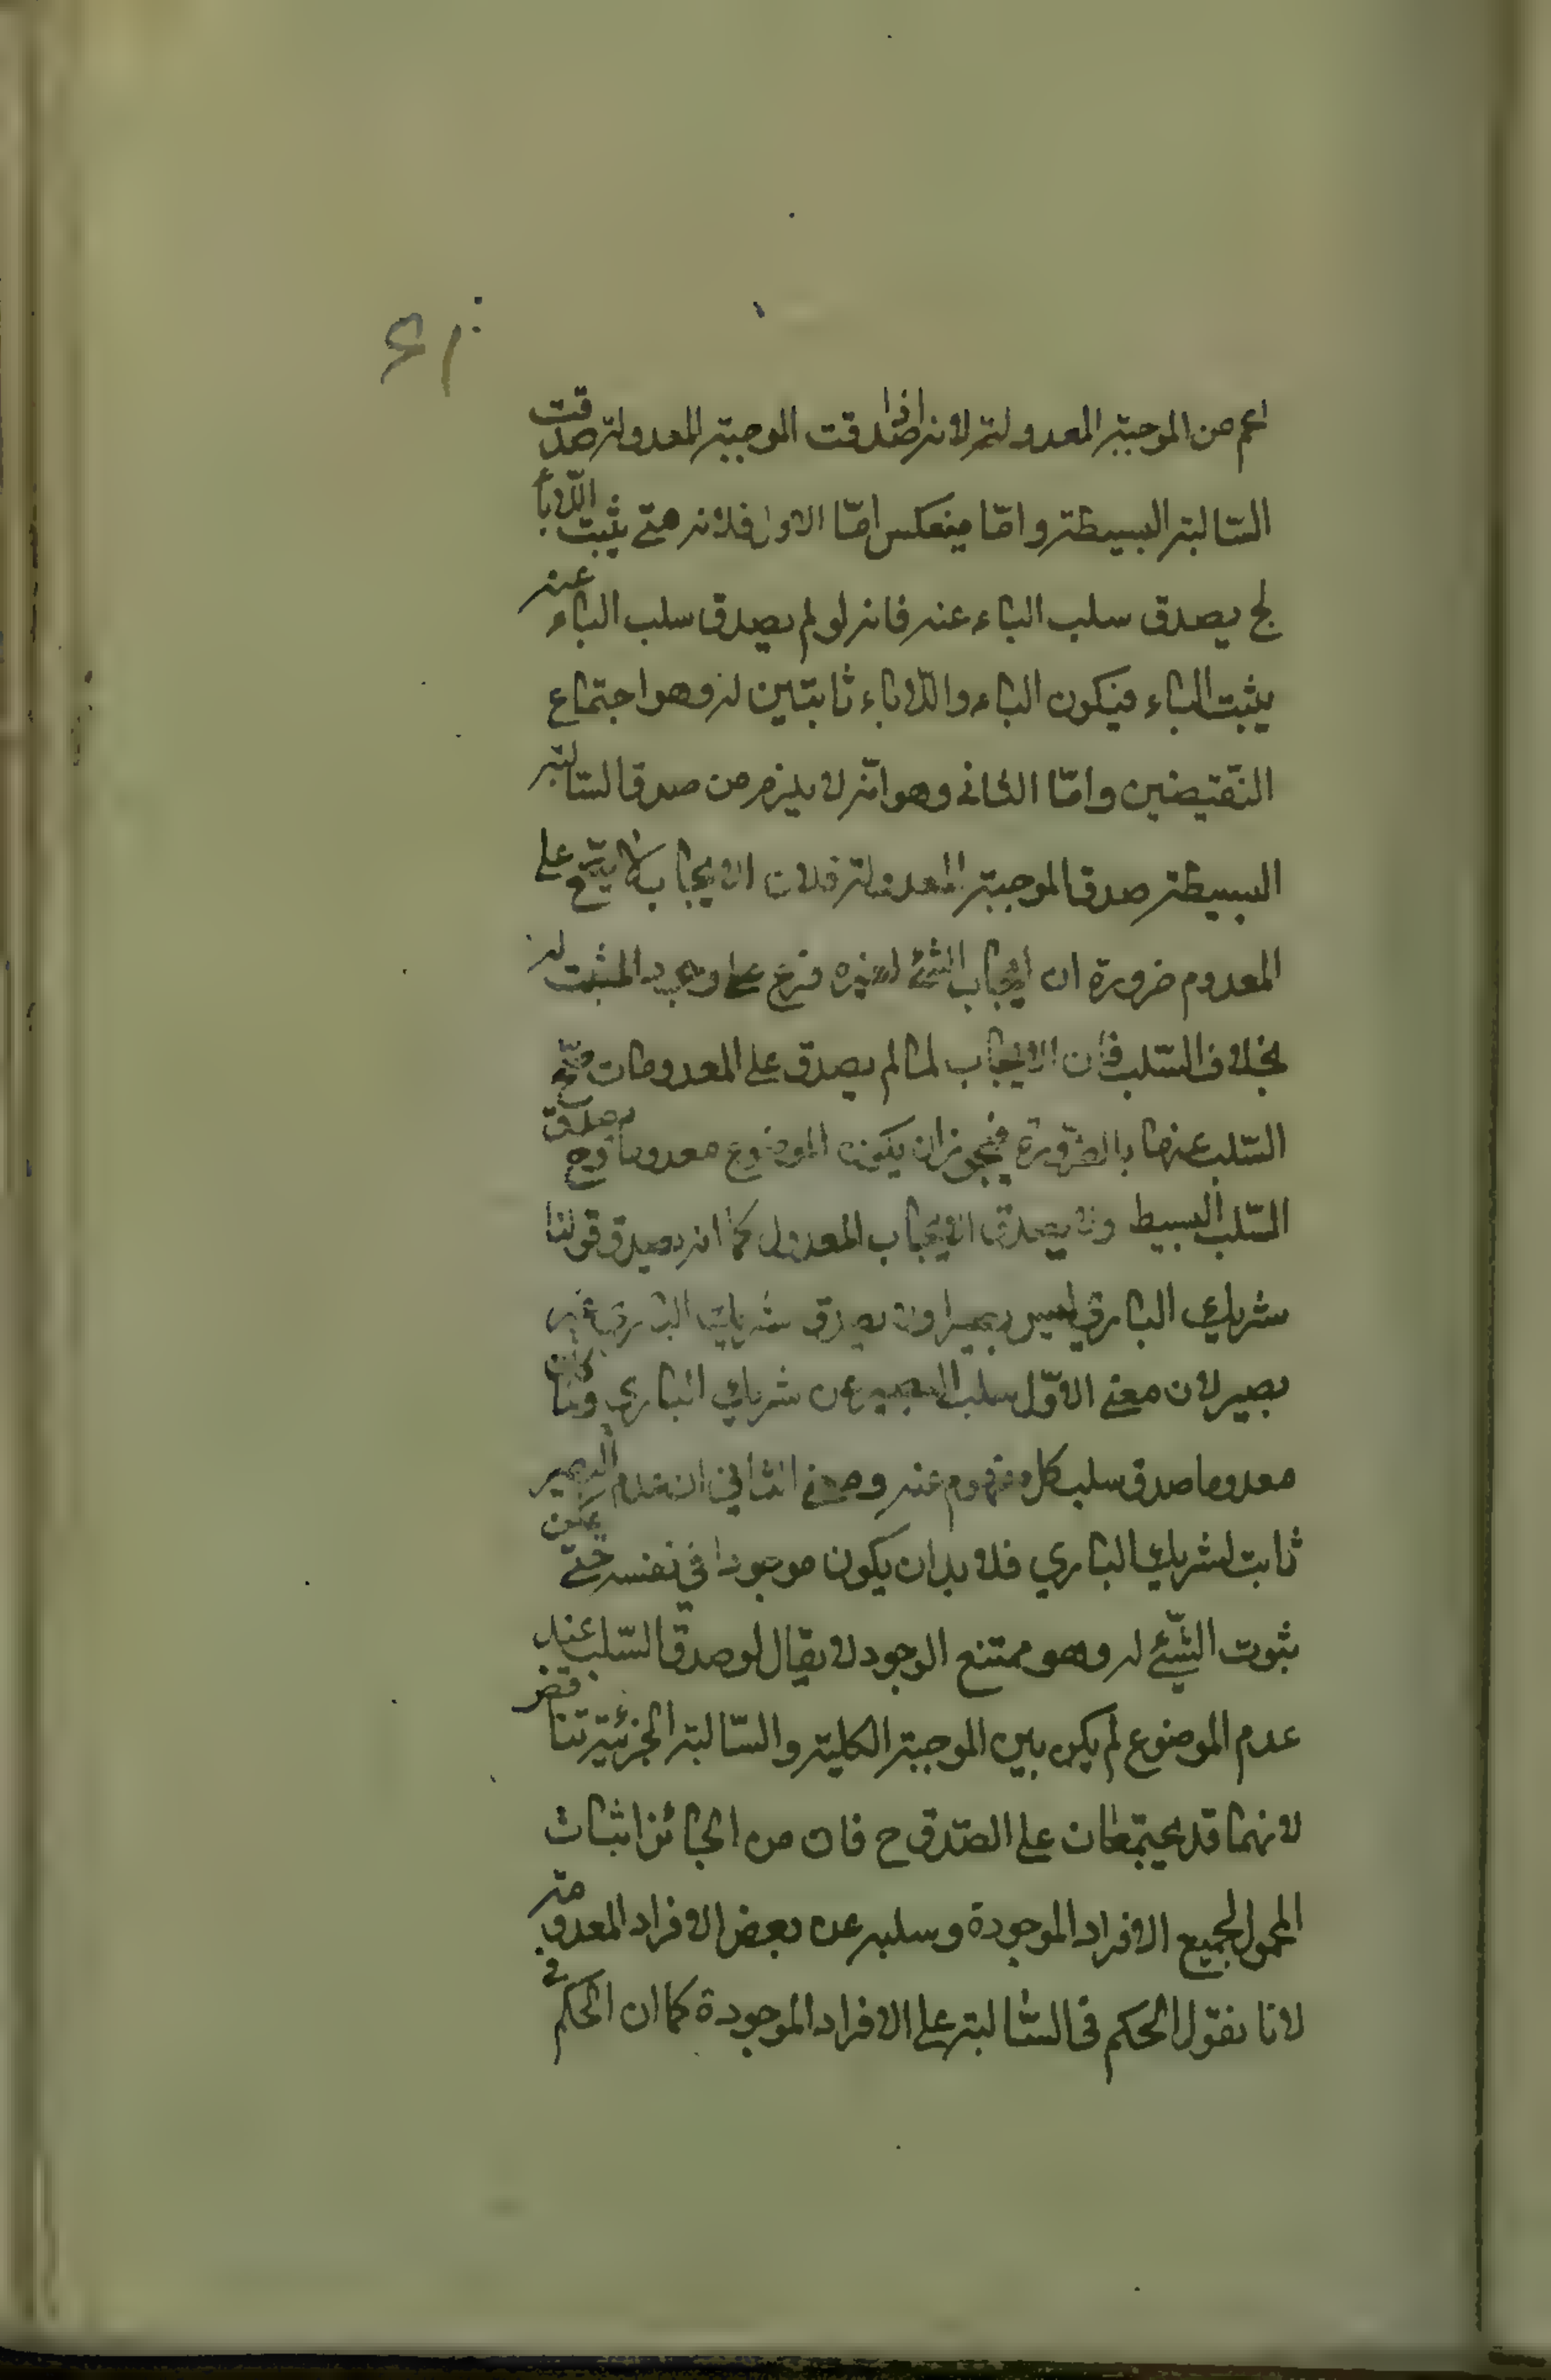 اعم من الموجبة المعدولة لانه اذا صدقت الموجبة المعدولة صدقت
السّالبة البسيطة و امّا ينعكس امّا الاول فلانه متى يثبت اللّاباء
لج يصدق سلب الباء عنه فانه لو لم يصدق سلب الباء عنه
يثبت الباء فيكون الباء و اللّاباء ثابتين له وهو اجتماع
النّقيضين و امّا الثانى وهو انّه لا يلزم من صدق السّالبة
البسيطة صدق الموجبة المعدولة فلان الايجاب لا يصح على
المعدوم ضرورة ان ايجاب الشئ لغيره فرع على وجود المثبت له
بخلاف السّلب فان الايجاب لما لم يصدق على المعدومات صحّ
السّلب عنها بالضّرورة فيجوز ان يكون الموضوع معدوما وح يصدق
السّلب البسيط ولا يصدق الايجاب المعدول كما انه يصدق قولنا
شريك البارى ليس ببصير ولا يصدق شريك البارى غير
بصير لان معنى الاوّل سلب البصير عن شريك البارى ولما كان
معدوما صدق سلب كل مفهوم عنه و معنى الثانى ان عدم البصير
ثابت لشريك البارى فلا بد ان يكون موجودا فى نفسه حتى يمكن
ثبوت الشّئ له وهو ممتنع الوجود لا يقال لو صدق السّلب عند
عدم الموضوع لم يكن بين الموجبة الكلية و السّالبة الجزئية تناقض
لانهما قد يجتمعان على الصّدق ح فان من الجائز اثبات
المحمول لجميع الافراد الموجودة و سلبه عن بعض الافراد المعدومة
لانا نقول الحكم فى السّالبة على الافراد الموجودة كما ان الحكم فى